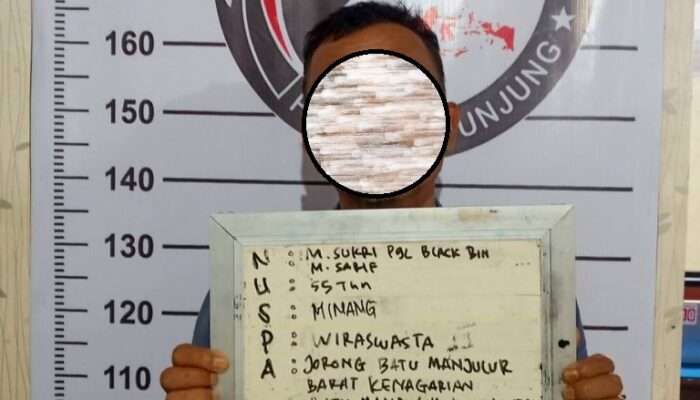 160
150
140
130
120
110
UNJUNG
N : M. SUKRI PGL BLACK BIN
M. SARIF
U : 55 Thn
S : MINANG
P : WIRASWASTA
A : JORONG BATU MANJULUR
BARAT KENAGARIAN